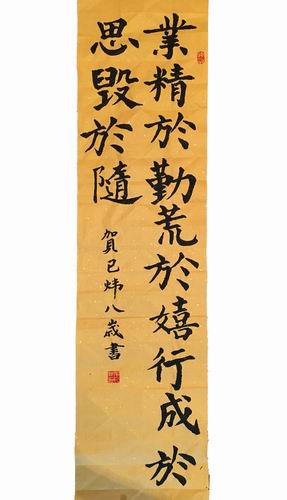 業精於勤荒於嬉行成於
思毀於隨
賀已煒八歲書